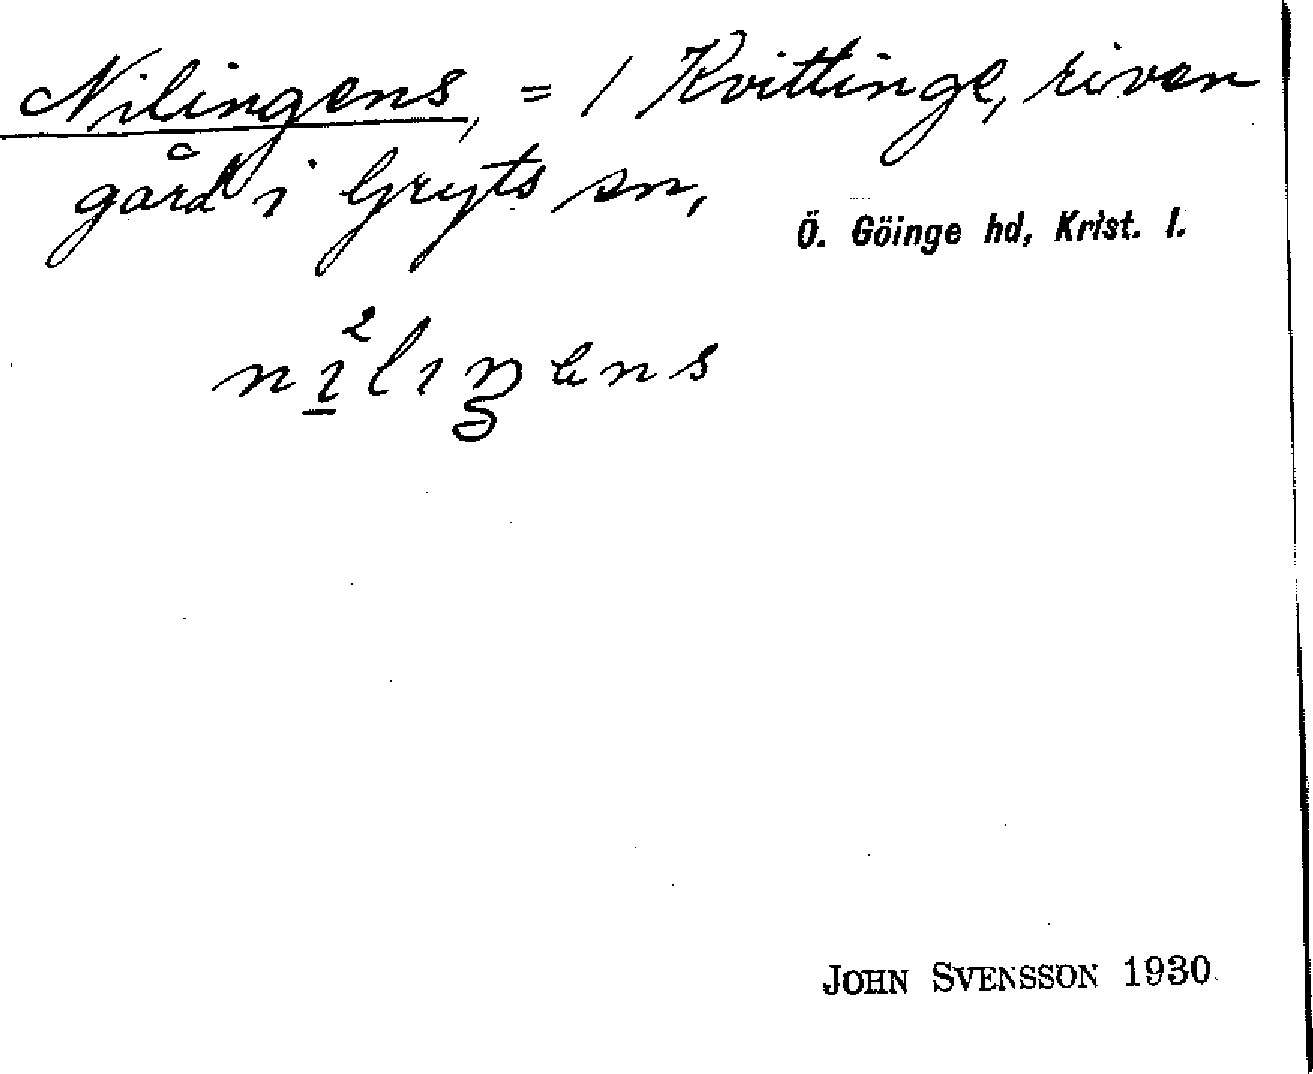 Nilingens, = 1 Kvittinge, riven
gård i Gryts sn,
Ö. Göinge hd, Krist. l.
nı̲²lıŋens
JOHN SVENSSON 1930